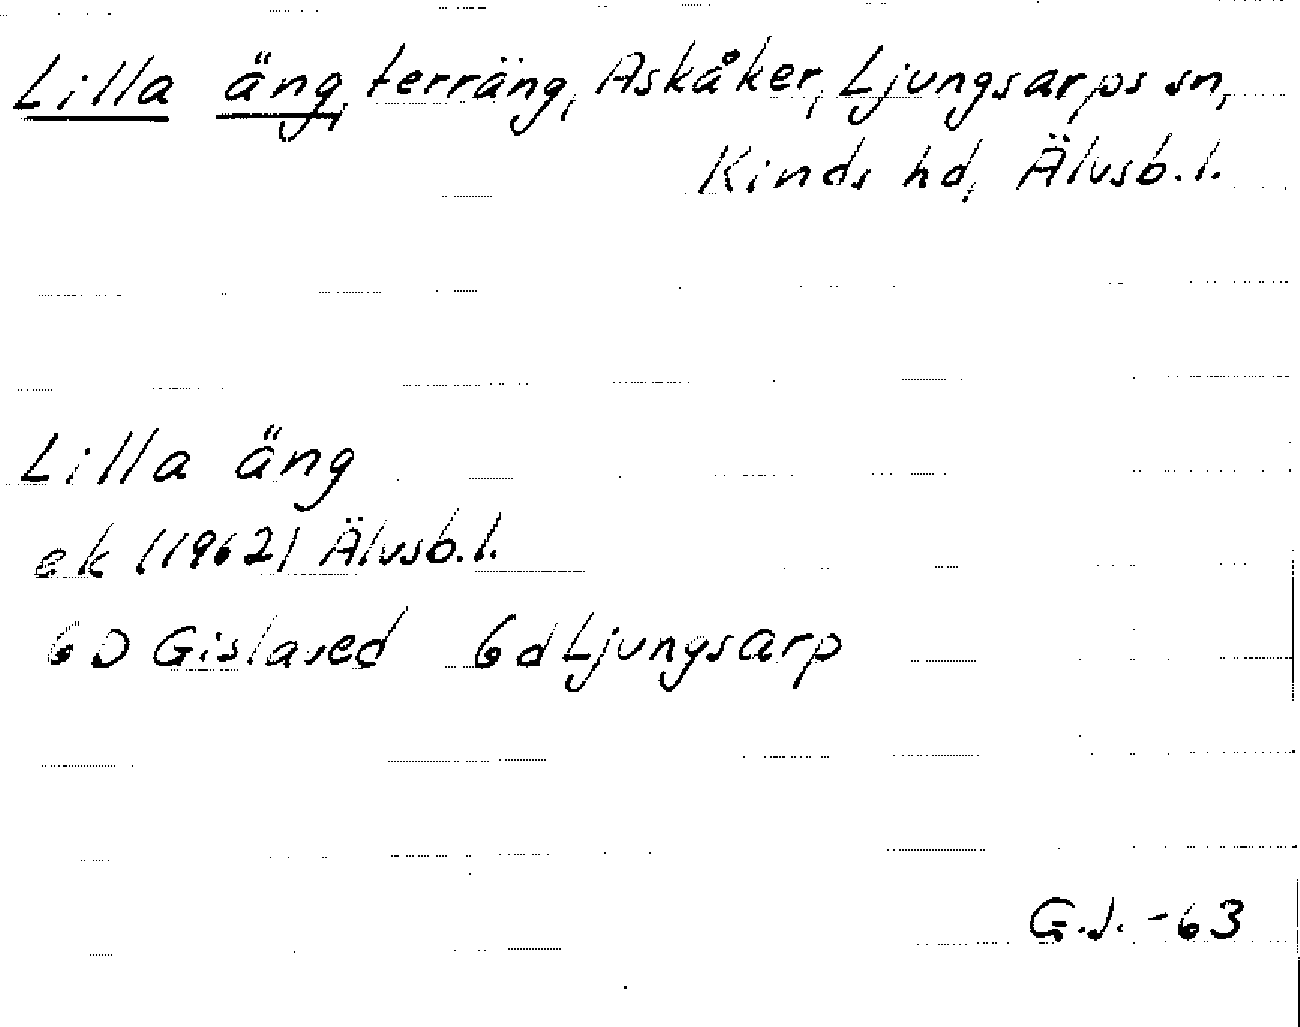 Lilla äng, terräng, Askåker, Ljungsarps sn,
Kinds hd, Älvsb.l.
Lilla äng
ek (1962) Älvsb.l.
6D Gislaved 6d Ljungsarp
G.J. -63